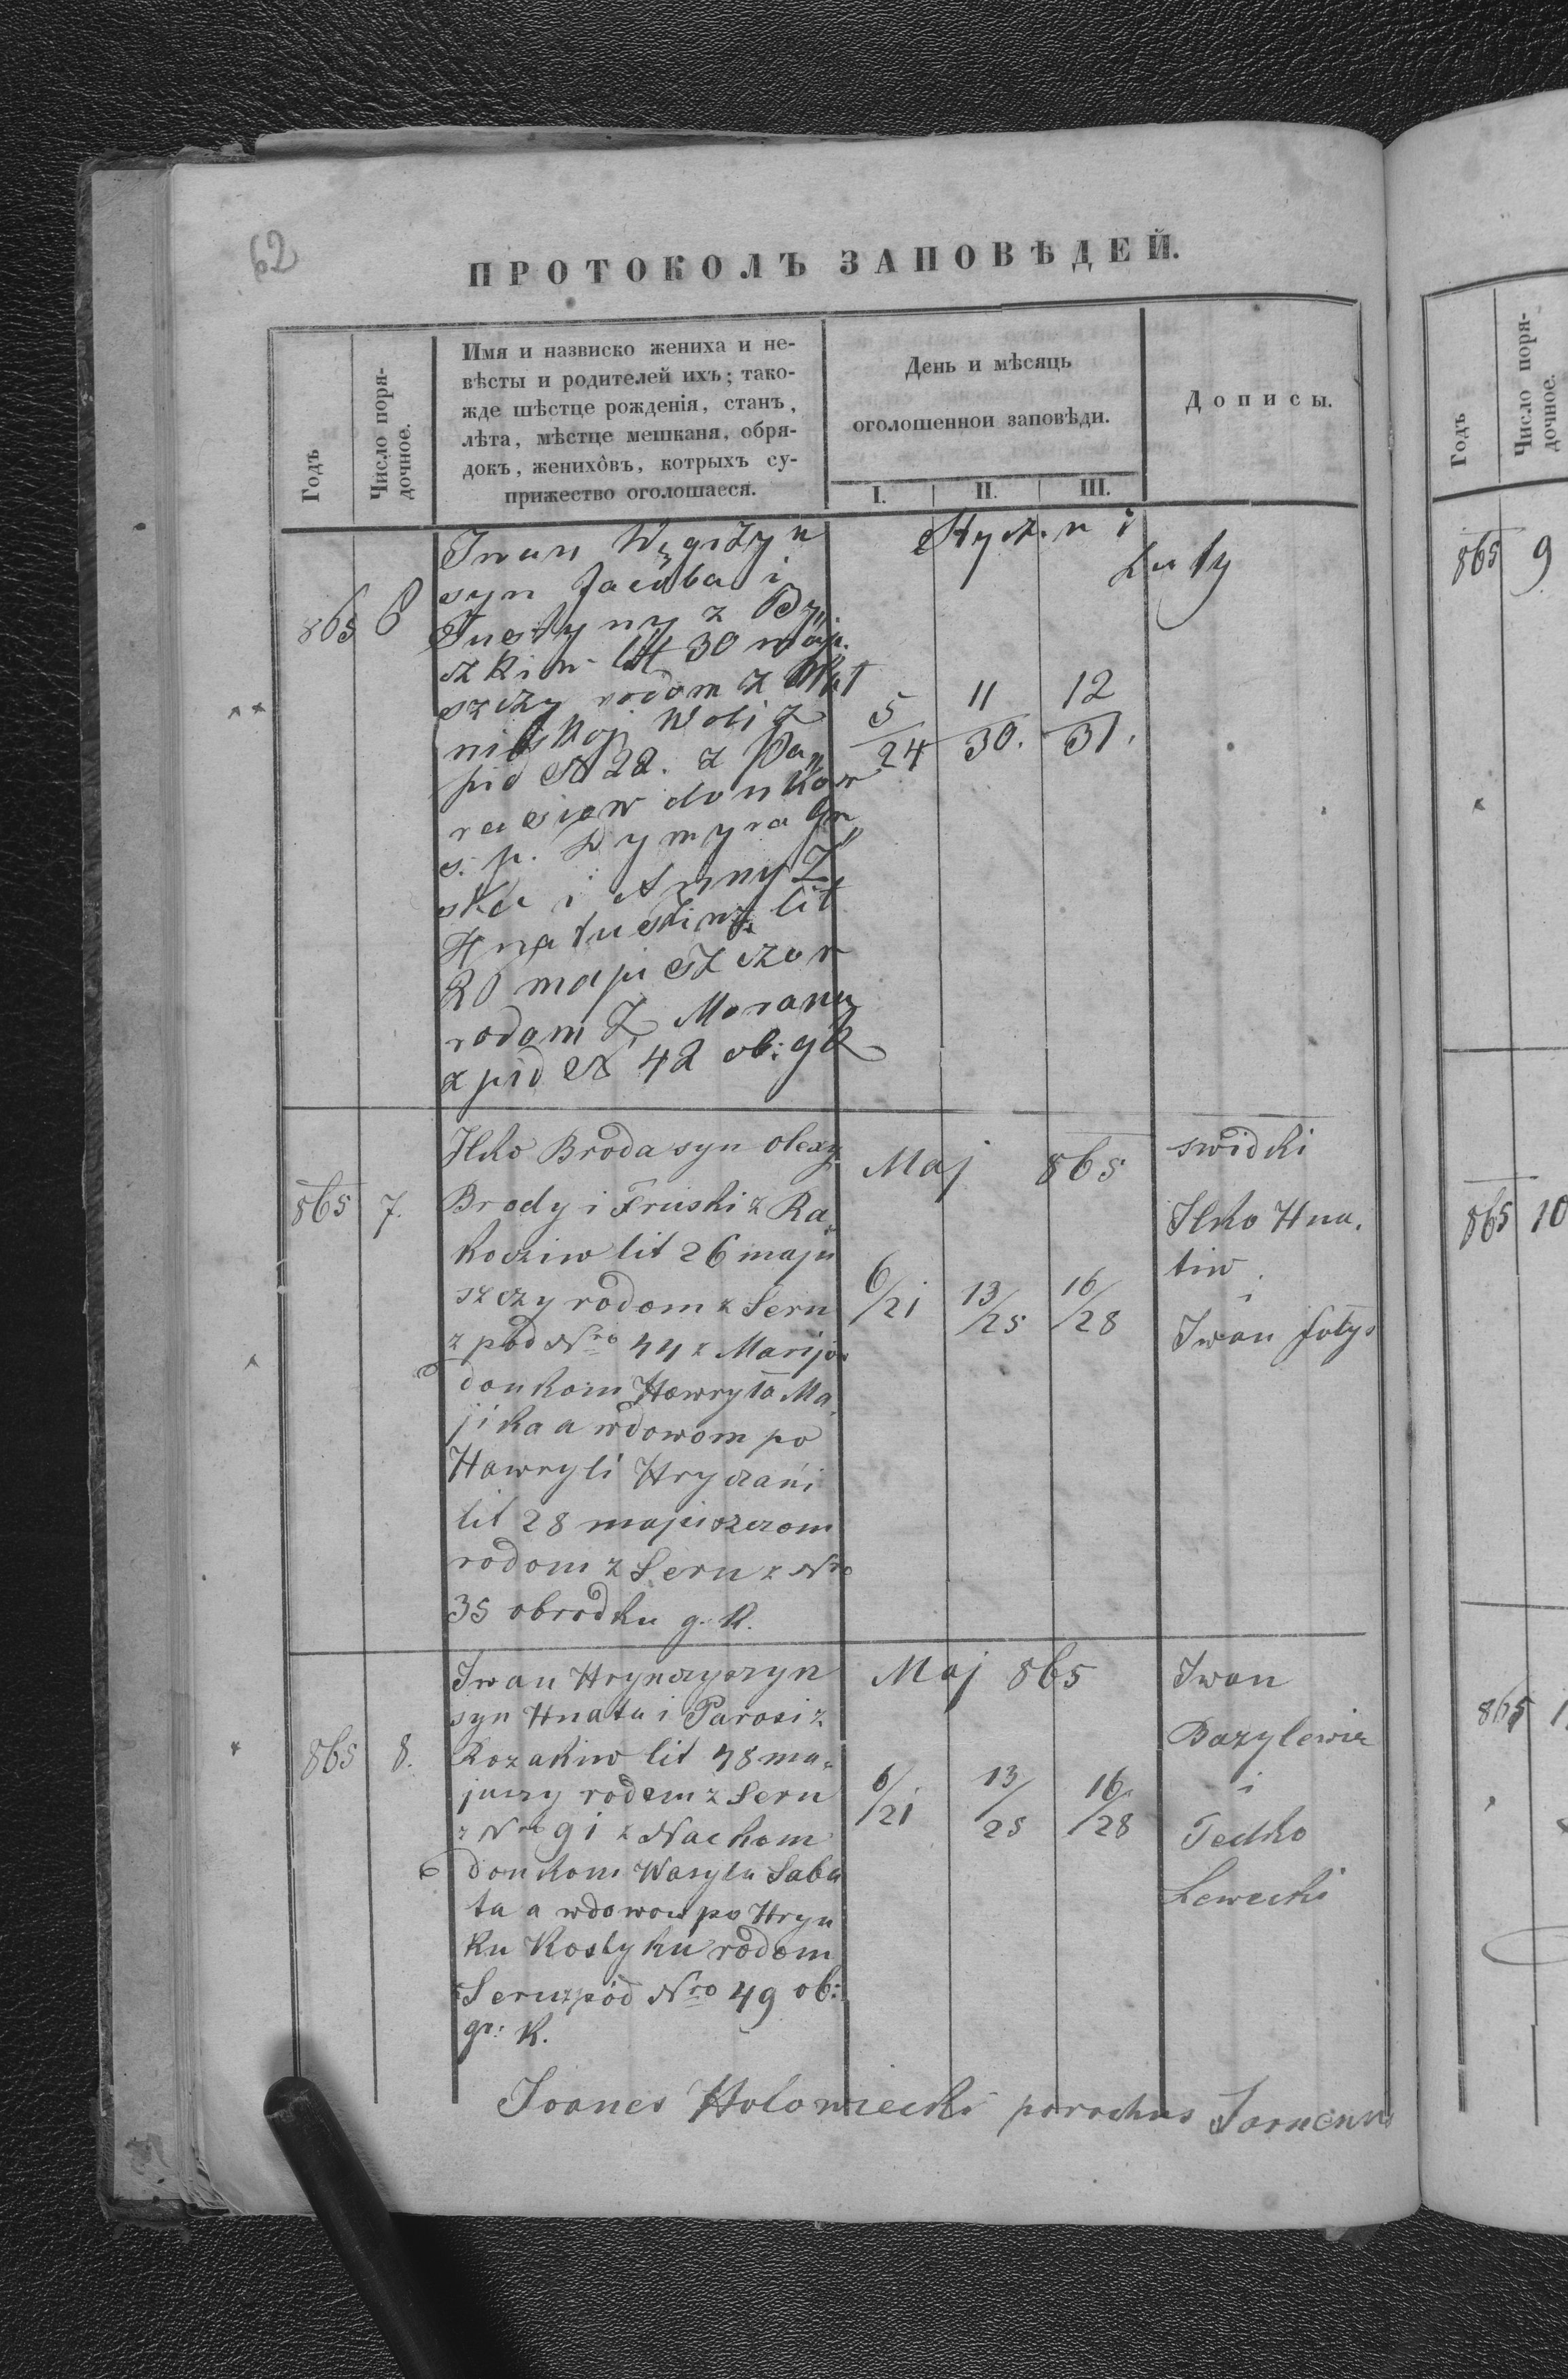 62
ПРОТОКОЛЪ ЗАПОВѢДЕЙ.
Годъ
Число поря-
дочное.
Имя и назвиско жениха и не-
вѣсты и родителей ихъ; тако-
жде шѣстце рожденія, станъ,
лѣта, мѣстце мешканя, обря-
докъ, женихôвъ, котрыхъ су-
прижество оголошаеся.
День и мѣсяць
оголошеннои заповѣди.
I. II. III.
Дописы.
865 6
Iwan Węgrzyn
syn Jacuba i
Justyny z
szkiw lit 30 maju
szczy rodom z
Woli z
pid N 22. z Pa
rasiow donkow
s. p. Dymyra
ska i Anny z
Hnatuskiw lit
20 maju szczow
rodom z Moranu
z pid N 42 ob: g k
Stycz. n i
Luty
5/24 11/30. 12/31.
865 7.
Ilko Broda syn olexy
Brody i Fruski z Ra
kocziw lit 26 maju
szczy rodom z Seru
z pod Nro 44 z Marijow
donkom Hawryla Ma
jika a wdowom po
Hawryli Hryczani
lit 28 majuszczom
rodom z Seru z Nro
35 obrodku g. K.
Maj 865
6/21 13/25 16/28
swidki
Ilko Hna.
tiw
i
Iwan fotys
865 8.
Iwan Hrynczyszyn
syn Hnata i Parosi z
Kozakiw lit 48 ma
juczy rodem z Seru
z Nro 91 z Nackom
donkom Wasyla Saba
ta a wdowow po Hryn
ku Kostyku rodom
Seru z pod Nro 49 ob:
gr: K.
Maj 865
6/21 13/25 16/28
Iwan
Bazylewicz
i
Fedko
Lewecki
Joanes Holowiecki parochus
865 9
865 10
865 1
Годъ
Число поря-
дочное.